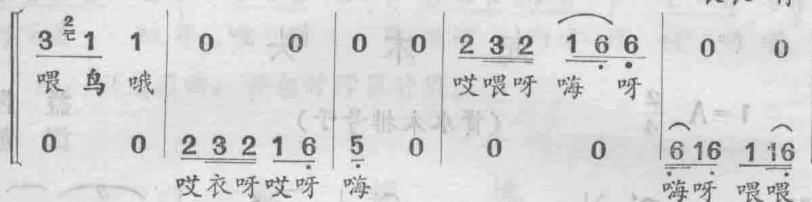 3 2 1 1 | 0 0 | 0 0 | 2 3 2 1 6 6 | 0 0
喂 鸟 哦 哎喂呀 嗨 呀
0 0 | 2 3 2 1 6 | 5 0 | 0 0 | 6 16 1 16
哎衣呀哎呀 嗨 嗨呀 喂喂